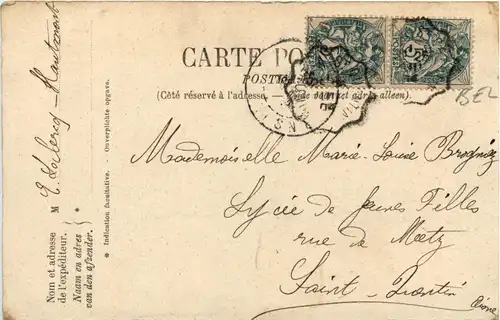 CARTE PO
POSTK
(Côté réservé à l'adresse. — adres alleen).
BEL
Mademoiselle Marie-Louise
Lycée de Jeunes Filles
rue de Metz
Saint-Quentin
Aisne
Nom et adresse
de l'expéditeur.
Naam en adres
van den afzender.
M E. Leclercq — Hautmont
* Indication facultative. - Onverplichte opgave.